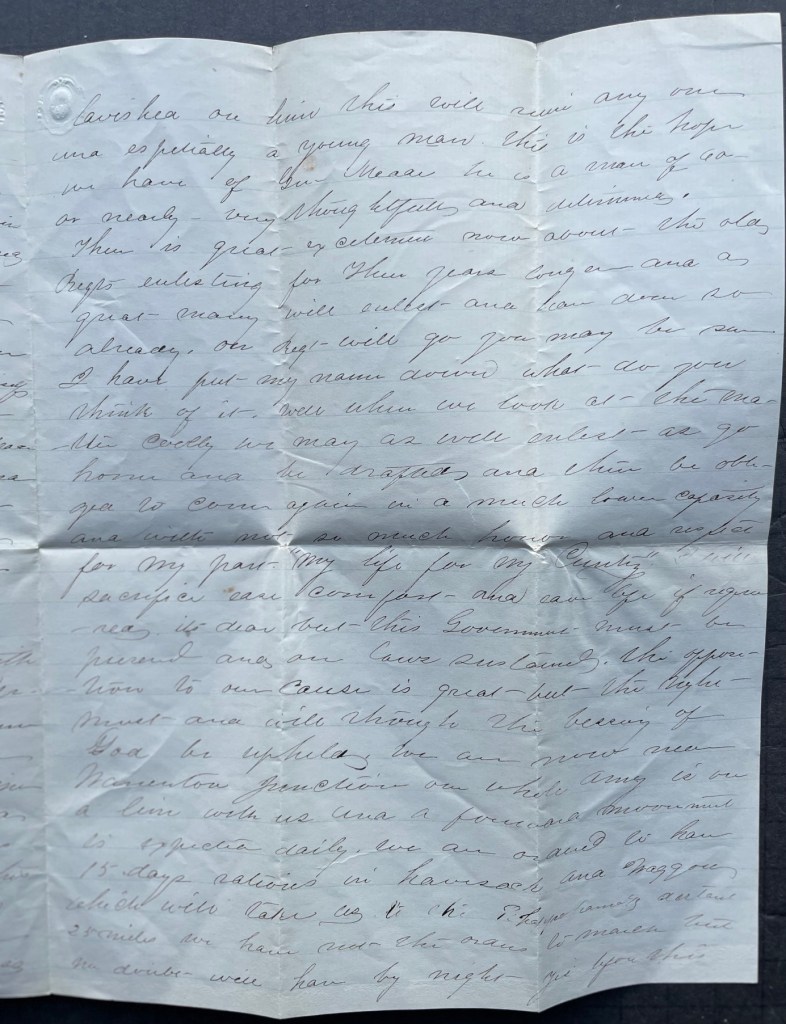 lavished on him this will ruin any one
and espetially a young man. this is the hope
we have of Gen Meade he is a man of 60
or nearly - very thoughtfully and
There is great excitement now about the old
Regts enlisting for Three years longer and a
great many will enlist and have done so
already. our Regt will go you may be sure
I have put my name down what do you
think of it. Well when we look at the ma-
-tter coolly we may as well enlist as go
home and be drafted and then be obli-
ged to come again in a much lower capasity
and with not so much honor and respect
for my part "My life for my Cuntry" I will
sacrifice ease comfort and even life if requi-
-red, its dear but this Government must be
preserved and our laws sustained. the opposi-
-tion to our cause is great but the right
must and will through the blessing of
God be upheld, we are now near
Warrenton Junction our whole army is on
a line with us and a forward movement
is expected daily. we are ordered to have
15 days rations in haversack and Waggons
which will take us to the distant
25 miles we have not the orders to march but
no doubt will have by night this